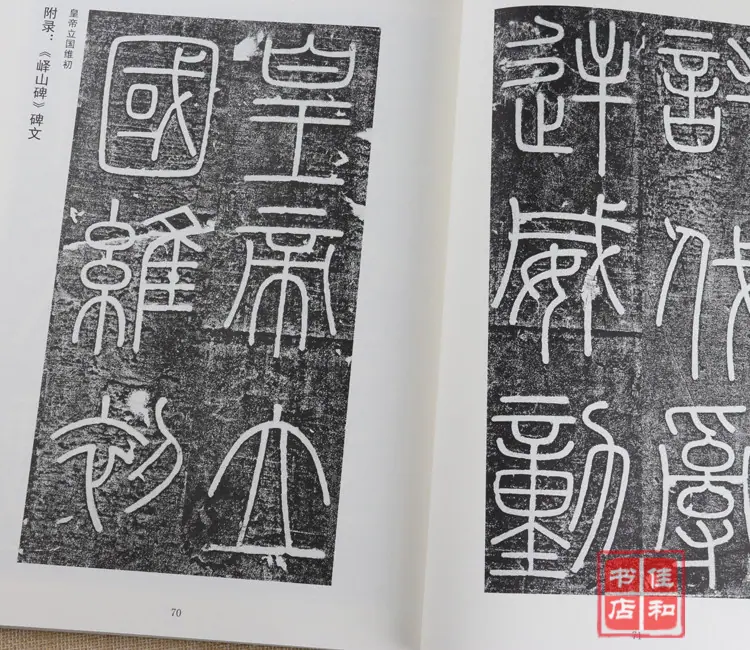 附录：《峄山碑》碑文
皇帝立国维初
皇帝立
國維初
70
討伐亂
逆威動
71
佳和
书店